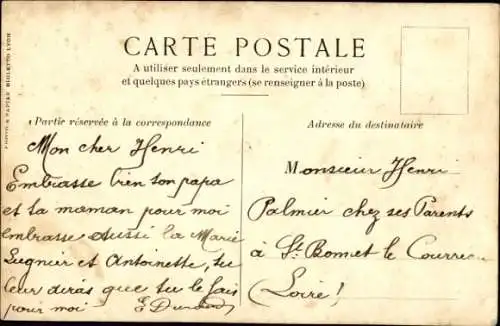 CARTE POSTALE
A utiliser seulement dans le service intérieur
et quelques pays étrangers (se renseigner à la poste)
Partie réservée à la correspondance
Mon cher Henri
Embrasse bien ton papa
et ta maman pour moi
embrasse aussi la Marie
et Antoinette, tu
leur diras que tu le fais
pour moi
Adresse du destinataire
Monsieur Henri
Palmier chez ses Parents
à St Bonnet le Courreau
(Loire)